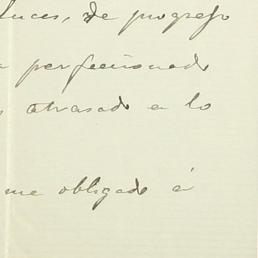 luces, de progreso
perfeccionado
atrasado a lo
me obligado á